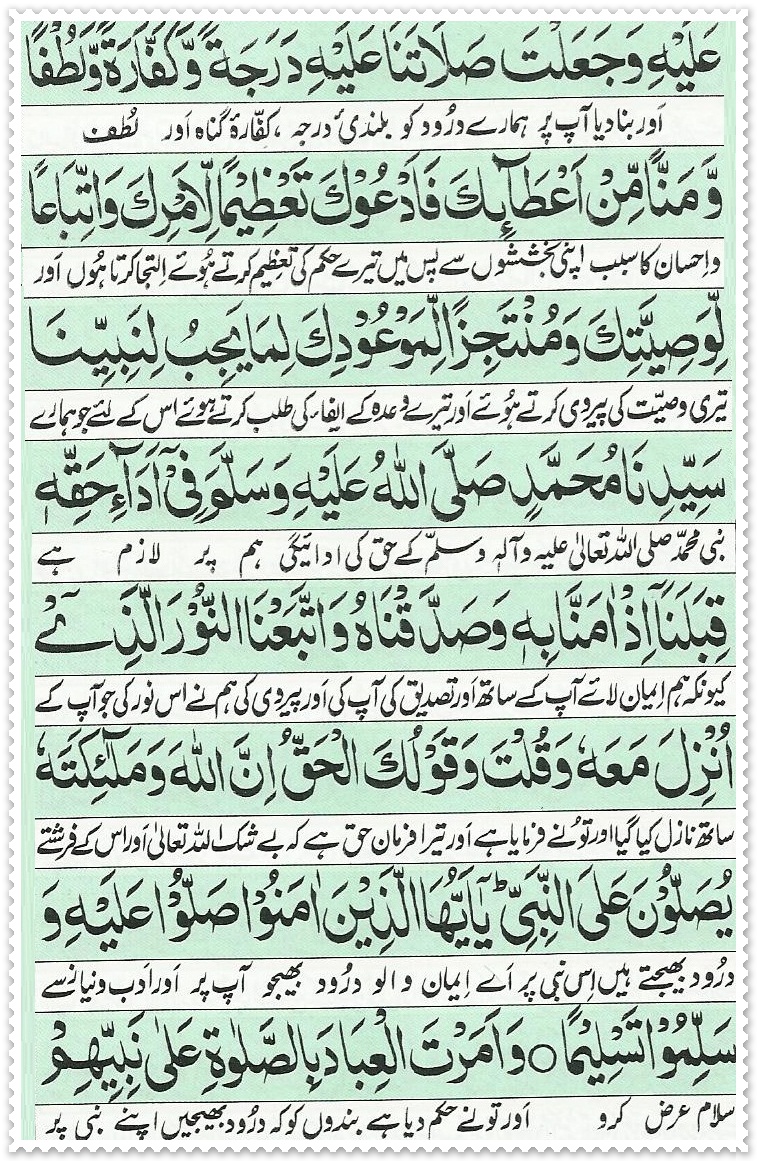 عَلَيْهِ وَجَعَلْتَ صَلَاتَنَا عَلَيْهِ دَرَجَةً وَّكَفَّارَةً وَّلُطْفًا
اَور بنا دیا آپ پر ہمارے درُود کو بلندیٔ درجہ ، کفّارۂ گناہ اَور لُطف
وَّمَنًّا مِّنْ اَعْطَآئِكَ فَاَدْعُوْكَ تَعْظِيْمًا لِّاَمْرِكَ وَاتِّبَاعًا
و اِحسان کا سبب اپنی بخششوں سے پس میں تیرے حکم کی تعظیم کرتے ہُوئے اِلتجا کرتا ہُوں اَور
لِّوَصِيَّتِكَ وَمُنْتَجِزًا لِّمَوْعُوْدِكَ لِمَا يَجِبُ لِنَبِيِّنَا
تیری وصیّت کی پیروی کرتے ہُوئے اَور تیرے وعدہ کے ایفاء کی طلب کرتے ہُوئے اس کے لئے جو ہمارے
سَيِّدِنَا مُحَمَّدٍ صَلَّى اللهُ عَلَيْهِ وَسَلَّمَ فِيْٓ اَدَآءِ حَقِّهٖ
نبی محمّد صلی اللہ تعالیٰ علیہ و آلہٖ وسلّم کے حق کی ادائیگی ہم پر لازم ہے
قِبَلَنَآ اِذْ اٰمَنَّا بِهٖ وَصَدَّقْنَاهُ وَاتَّبَعْنَا النُّوْرَ الَّذِيْٓ
کیونکہ ہم اِیمان لائے آپ کے ساتھ اَور تصدیق کی آپ کی اَور پیروی کی ہم نے اس نور کی جو آپ کے
اُنْزِلَ مَعَهٗ وَقُلْتَ وَقَوْلُكَ الْحَقُّ اِنَّ اللهَ وَمَلٰٓئِكَتَهٗ
ساتھ نازل کیا گیا اور تو نُے فرمایا ہے اَور تیرا فرمان حق ہے کہ بے شک اللہ تعالیٰ اَور اس کے فرشتے
يُصَلُّوْنَ عَلَى النَّبِيِّ ؕ يٰٓاَيُّهَا الَّذِيْنَ اٰمَنُوْا صَلُّوْا عَلَيْهِ وَ
درُود بھیجتے ہیں اِس نبی پر اَے اِیمان والو درُود بھیجو آپ پر اَور اَدب و نیاز سے
سَلِّمُوْا تَسْلِيْمًا ○ وَاَمَرْتَ الْعِبَادَ بِالصَّلٰوةِ عَلٰى نَبِيِّهِمْ
سلام عرض کرو اَور تو نے حکم دیا ہے بندوں کو کہ درُود بھیجیں اپنے نبی پر